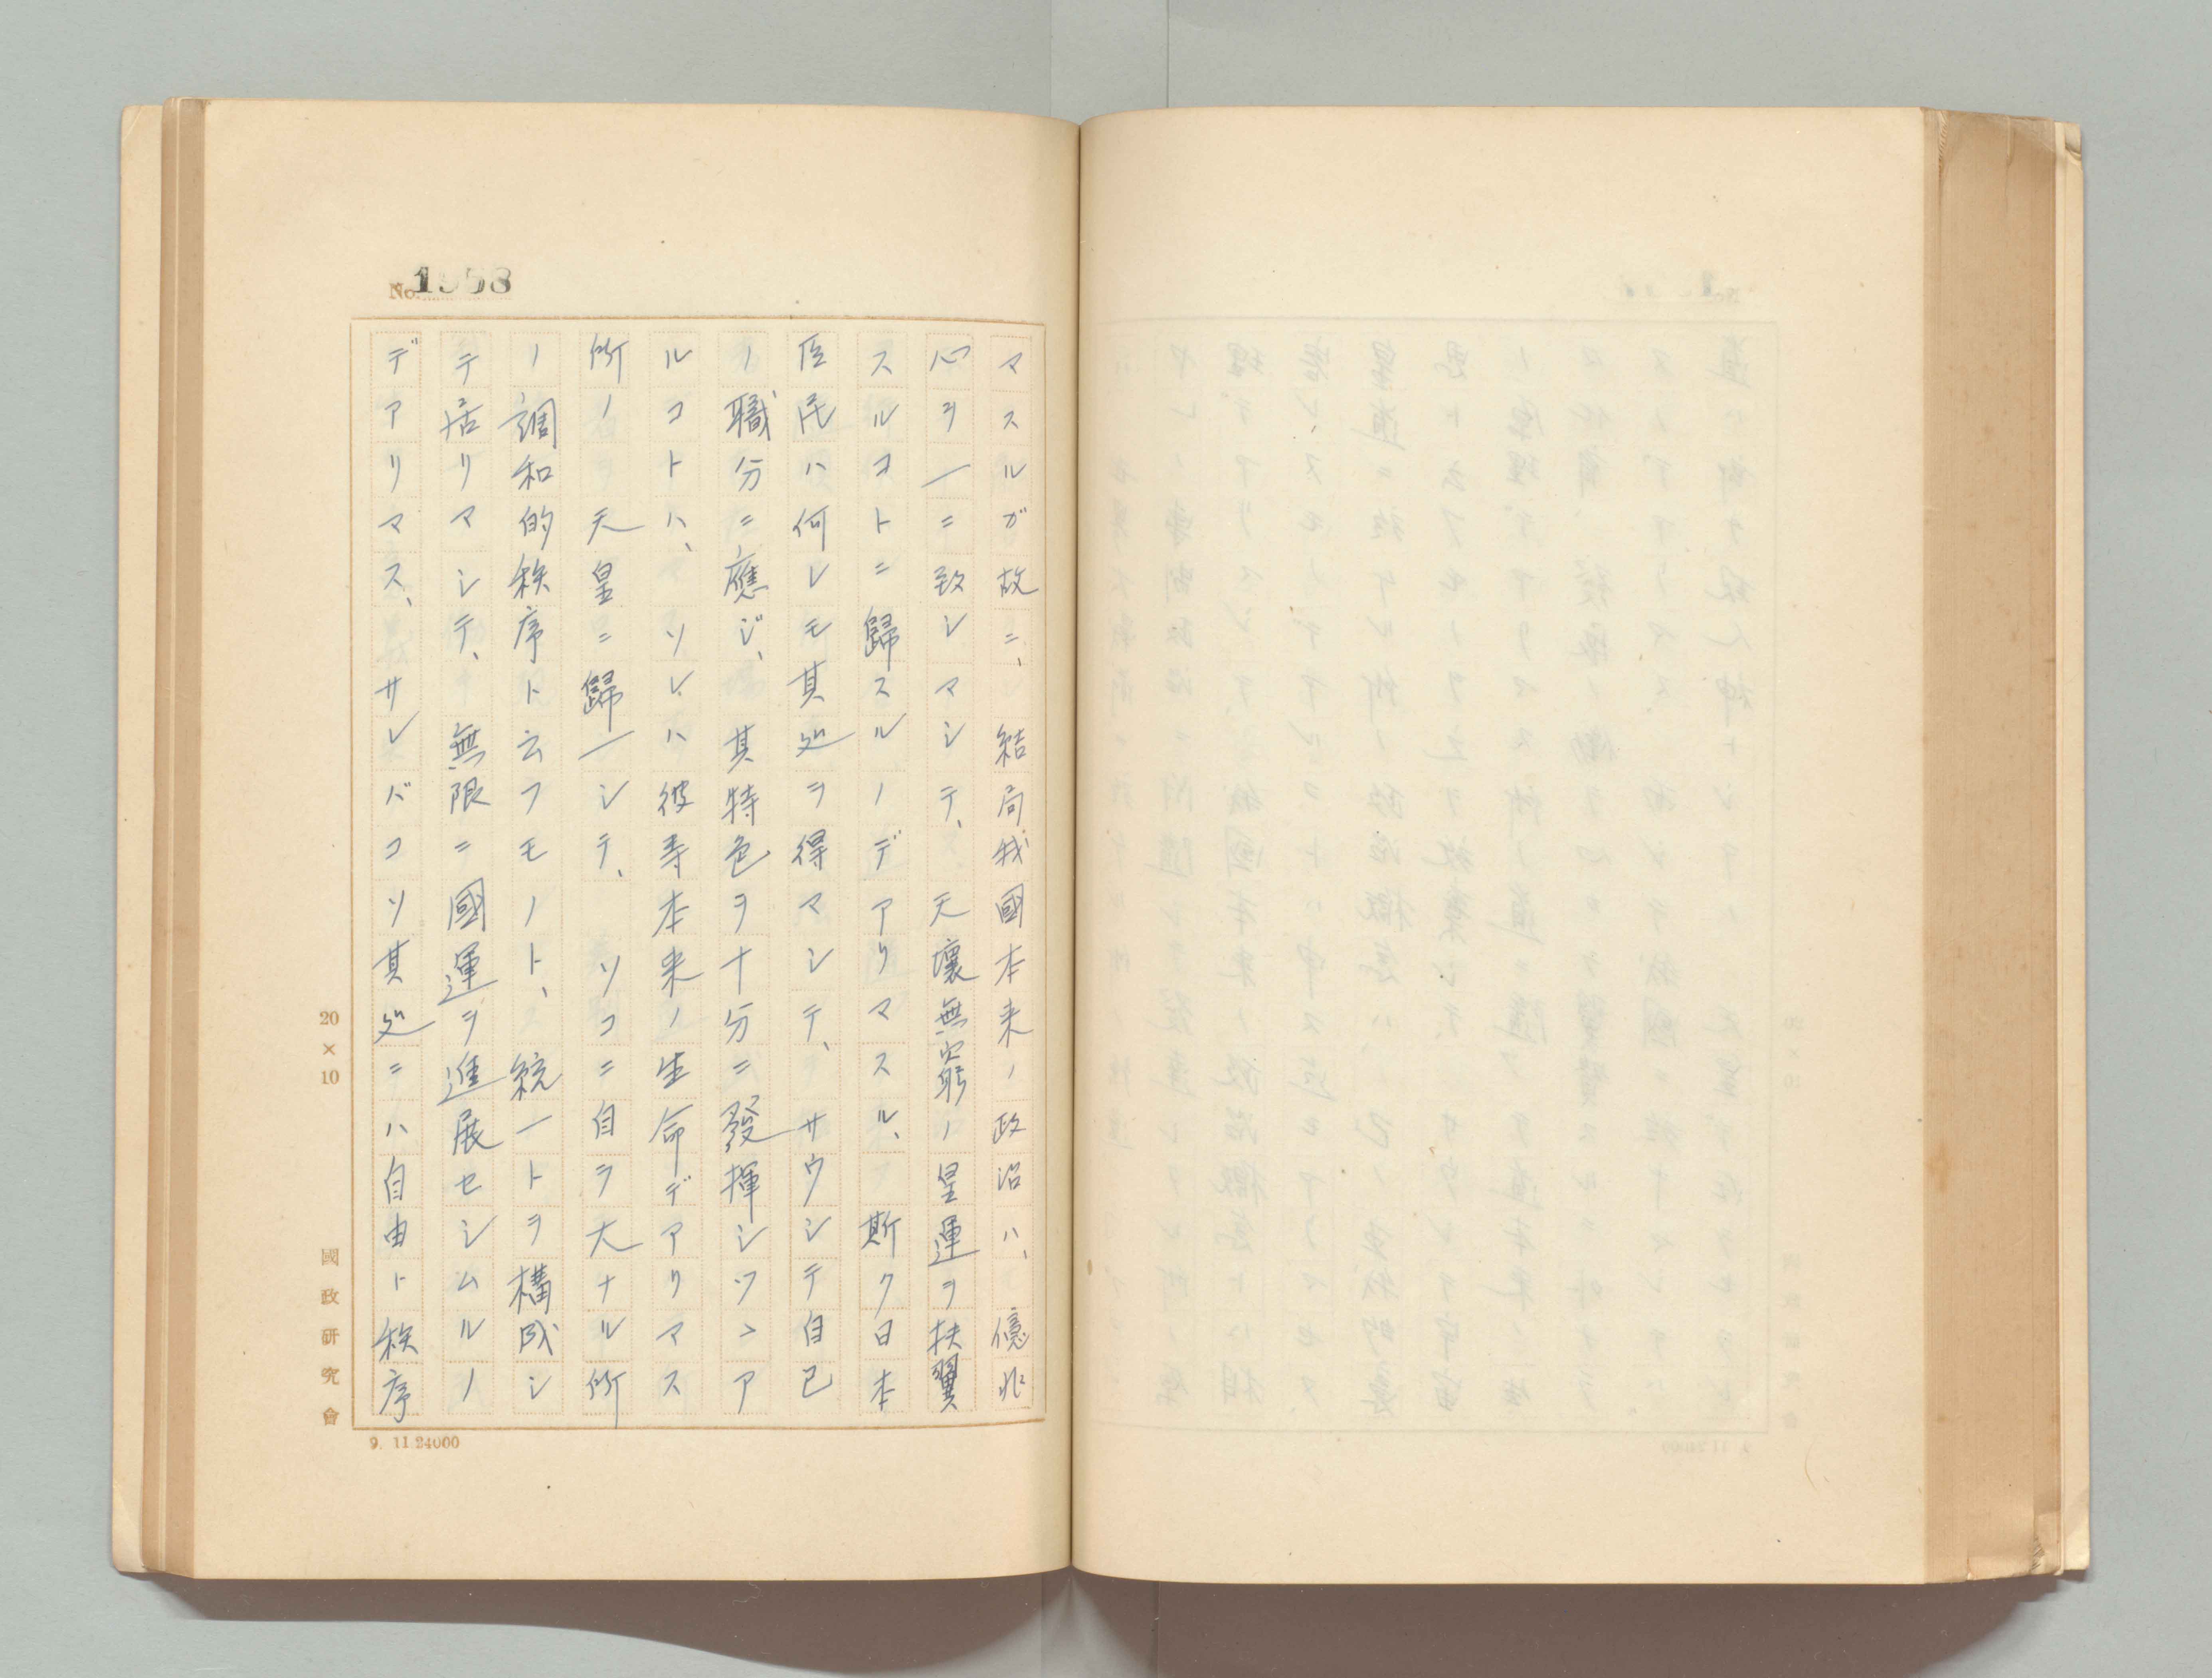 No. 1958
マスルガ故ニ、結局我國本来ノ政治ハ、億兆
心ヲ一ニ致シマシテ、天壤無窮ノ皇運ヲ扶翼
スルコトニ歸スルノデアリマスル、斯ク日本
臣民ハ何レモ其処ヲ得マシテ、サウシテ自己
ノ職分ニ應ジ、其特色ヲ十分ニ發揮シツヽア
ルコトハ、ソレハ彼等本来ノ生命デアリマス
所ノ 天皇ニ歸一シテ、ソコニ自ラ大ナル所
ノ調和的秩序ト云フモノト、統一トヲ構成シ
テ居リマシテ、無限ニ國運ヲ進展セシムルノ
デアリマス、サレバコソ其処ニハ自由ト秩序
20×10
國政研究會
9. 11 24000